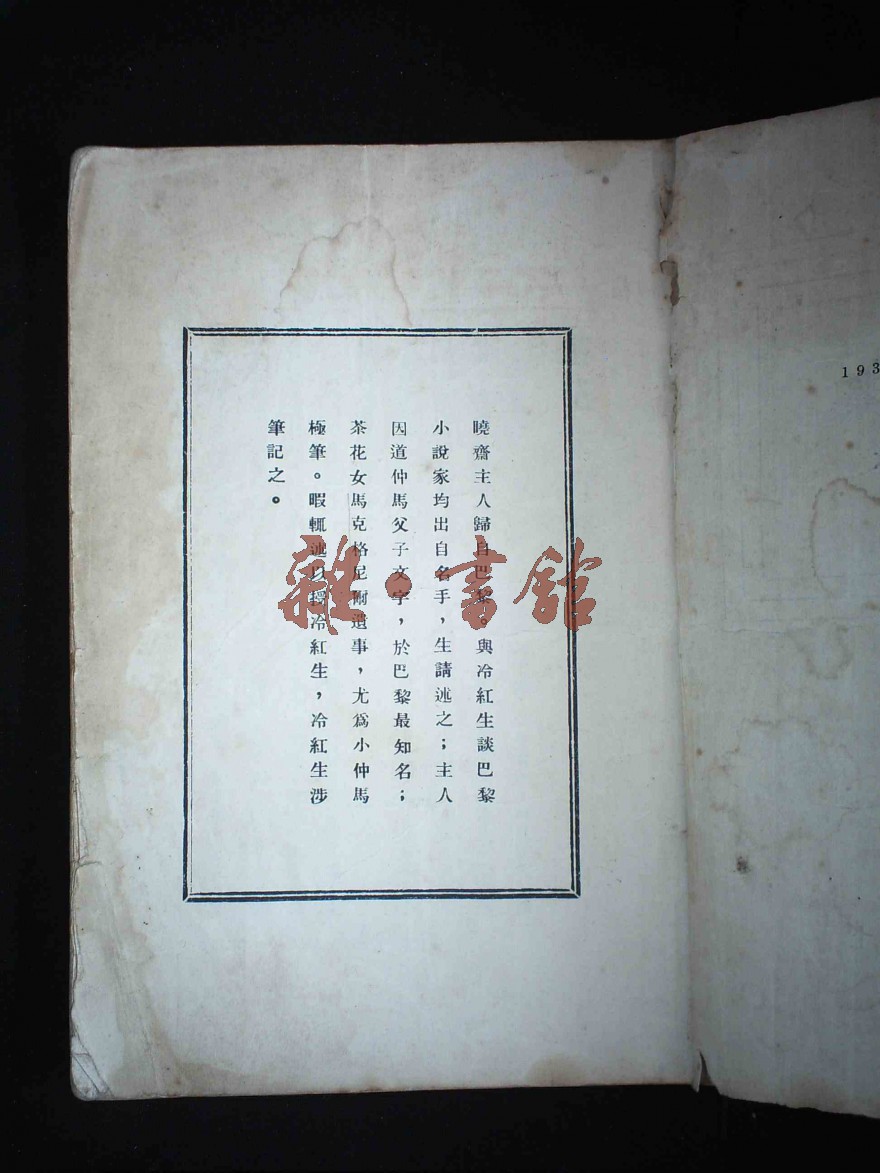 曉齋主人歸自巴黎。與冷紅生談巴黎
小說家均出自名手，生請述之；主人
因道仲馬父子文字，於巴黎最知名；
茶花女馬克格尼爾遺事，尤爲小仲馬
極筆。暇輒述以授冷紅生，冷紅生涉
筆記之。
雜·書館
193